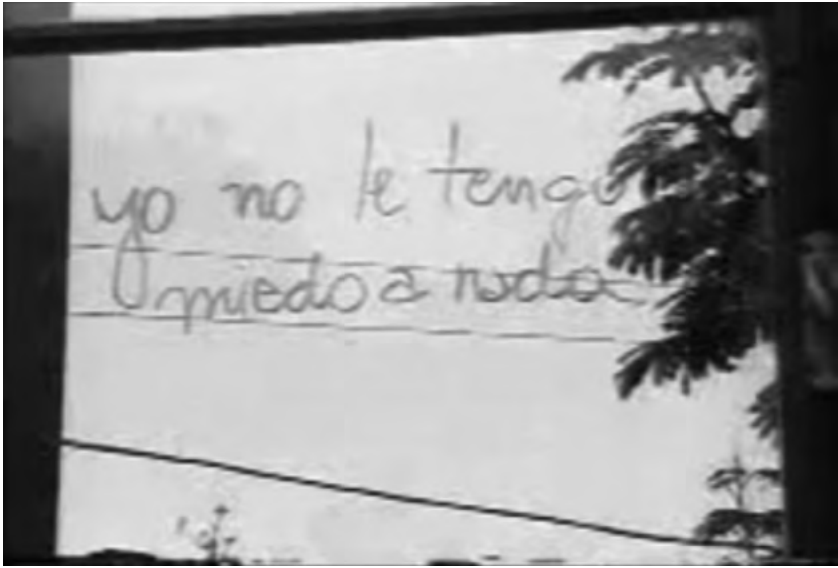 yo no le tengo
miedo a nada